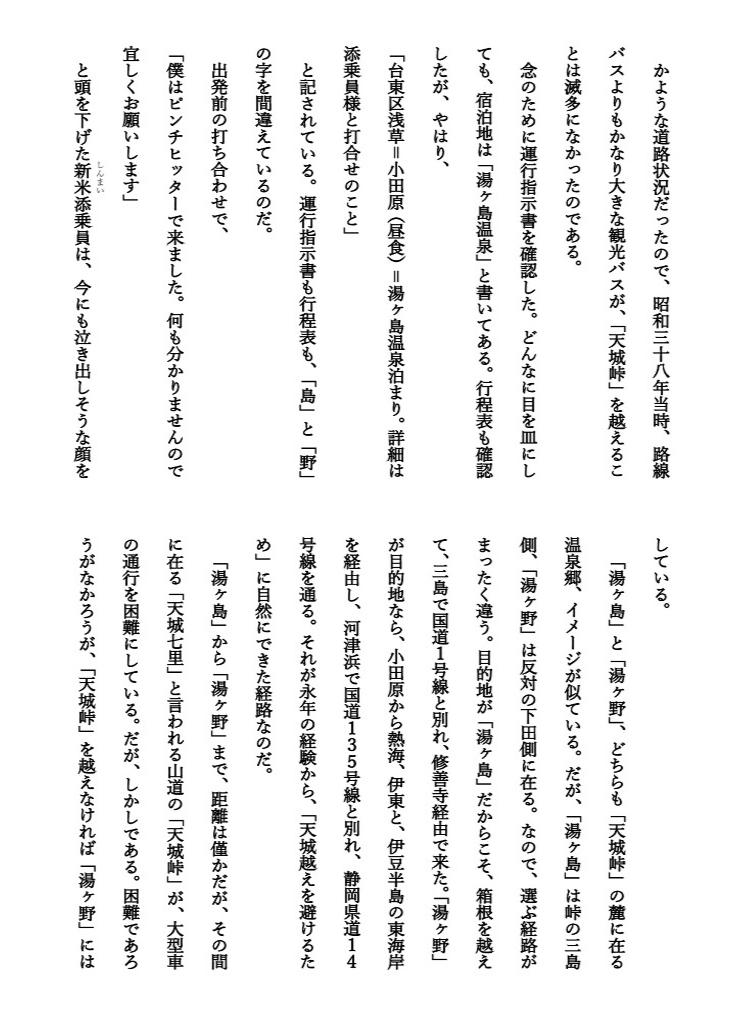 かような道路状況だったので、昭和三十八年当時、路線
バスよりもかなり大きな観光バスが、「天城峠」を越えるこ
とは滅多になかったのである。
念のために運行指示書を確認した。どんなに目を皿にし
ても、宿泊地は「湯ヶ島温泉」と書いてある。行程表も確認
したが、やはり、
「台東区浅草＝小田原（昼食）＝湯ヶ島温泉泊まり。詳細は
添乗員様と打合せのこと」
と記されている。運行指示書も行程表も、「島」と「野」
の字を間違えているのだ。
出発前の打ち合わせで、
「僕はピンチヒッターで来ました。何も分かりませんので
宜しくお願いします」
と頭を下げた新米添乗員は、今にも泣き出しそうな顔を
しんまい
している。
「湯ヶ島」と「湯ヶ野」、どちらも「天城峠」の麓に在る
温泉郷、イメージが似ている。だが、「湯ヶ島」は峠の三島
側、「湯ヶ野」は反対の下田側に在る。なので、選ぶ経路が
まったく違う。目的地が「湯ヶ島」だからこそ、箱根を越え
て、三島で国道１号線と別れ、修善寺経由で来た。「湯ヶ野」
が目的地なら、小田原から熱海、伊東と、伊豆半島の東海岸
を経由し、河津浜で国道１３５号線と別れ、静岡県道１４
号線を通る。それが永年の経験から、「天城越えを避けるた
め」に自然にできた経路なのだ。
「湯ヶ島」から「湯ヶ野」まで、距離は僅かだが、その間
に在る「天城七里」と言われる山道の「天城峠」が、大型車
の通行を困難にしている。だが、しかしである。困難であろ
うがなかろうが、「天城峠」を越えなければ「湯ヶ野」には